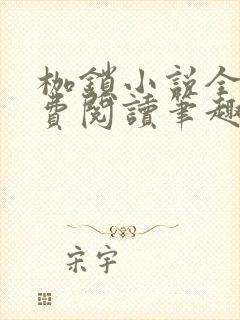 枷鎖小說全
費閱讀筆趣
宋宇